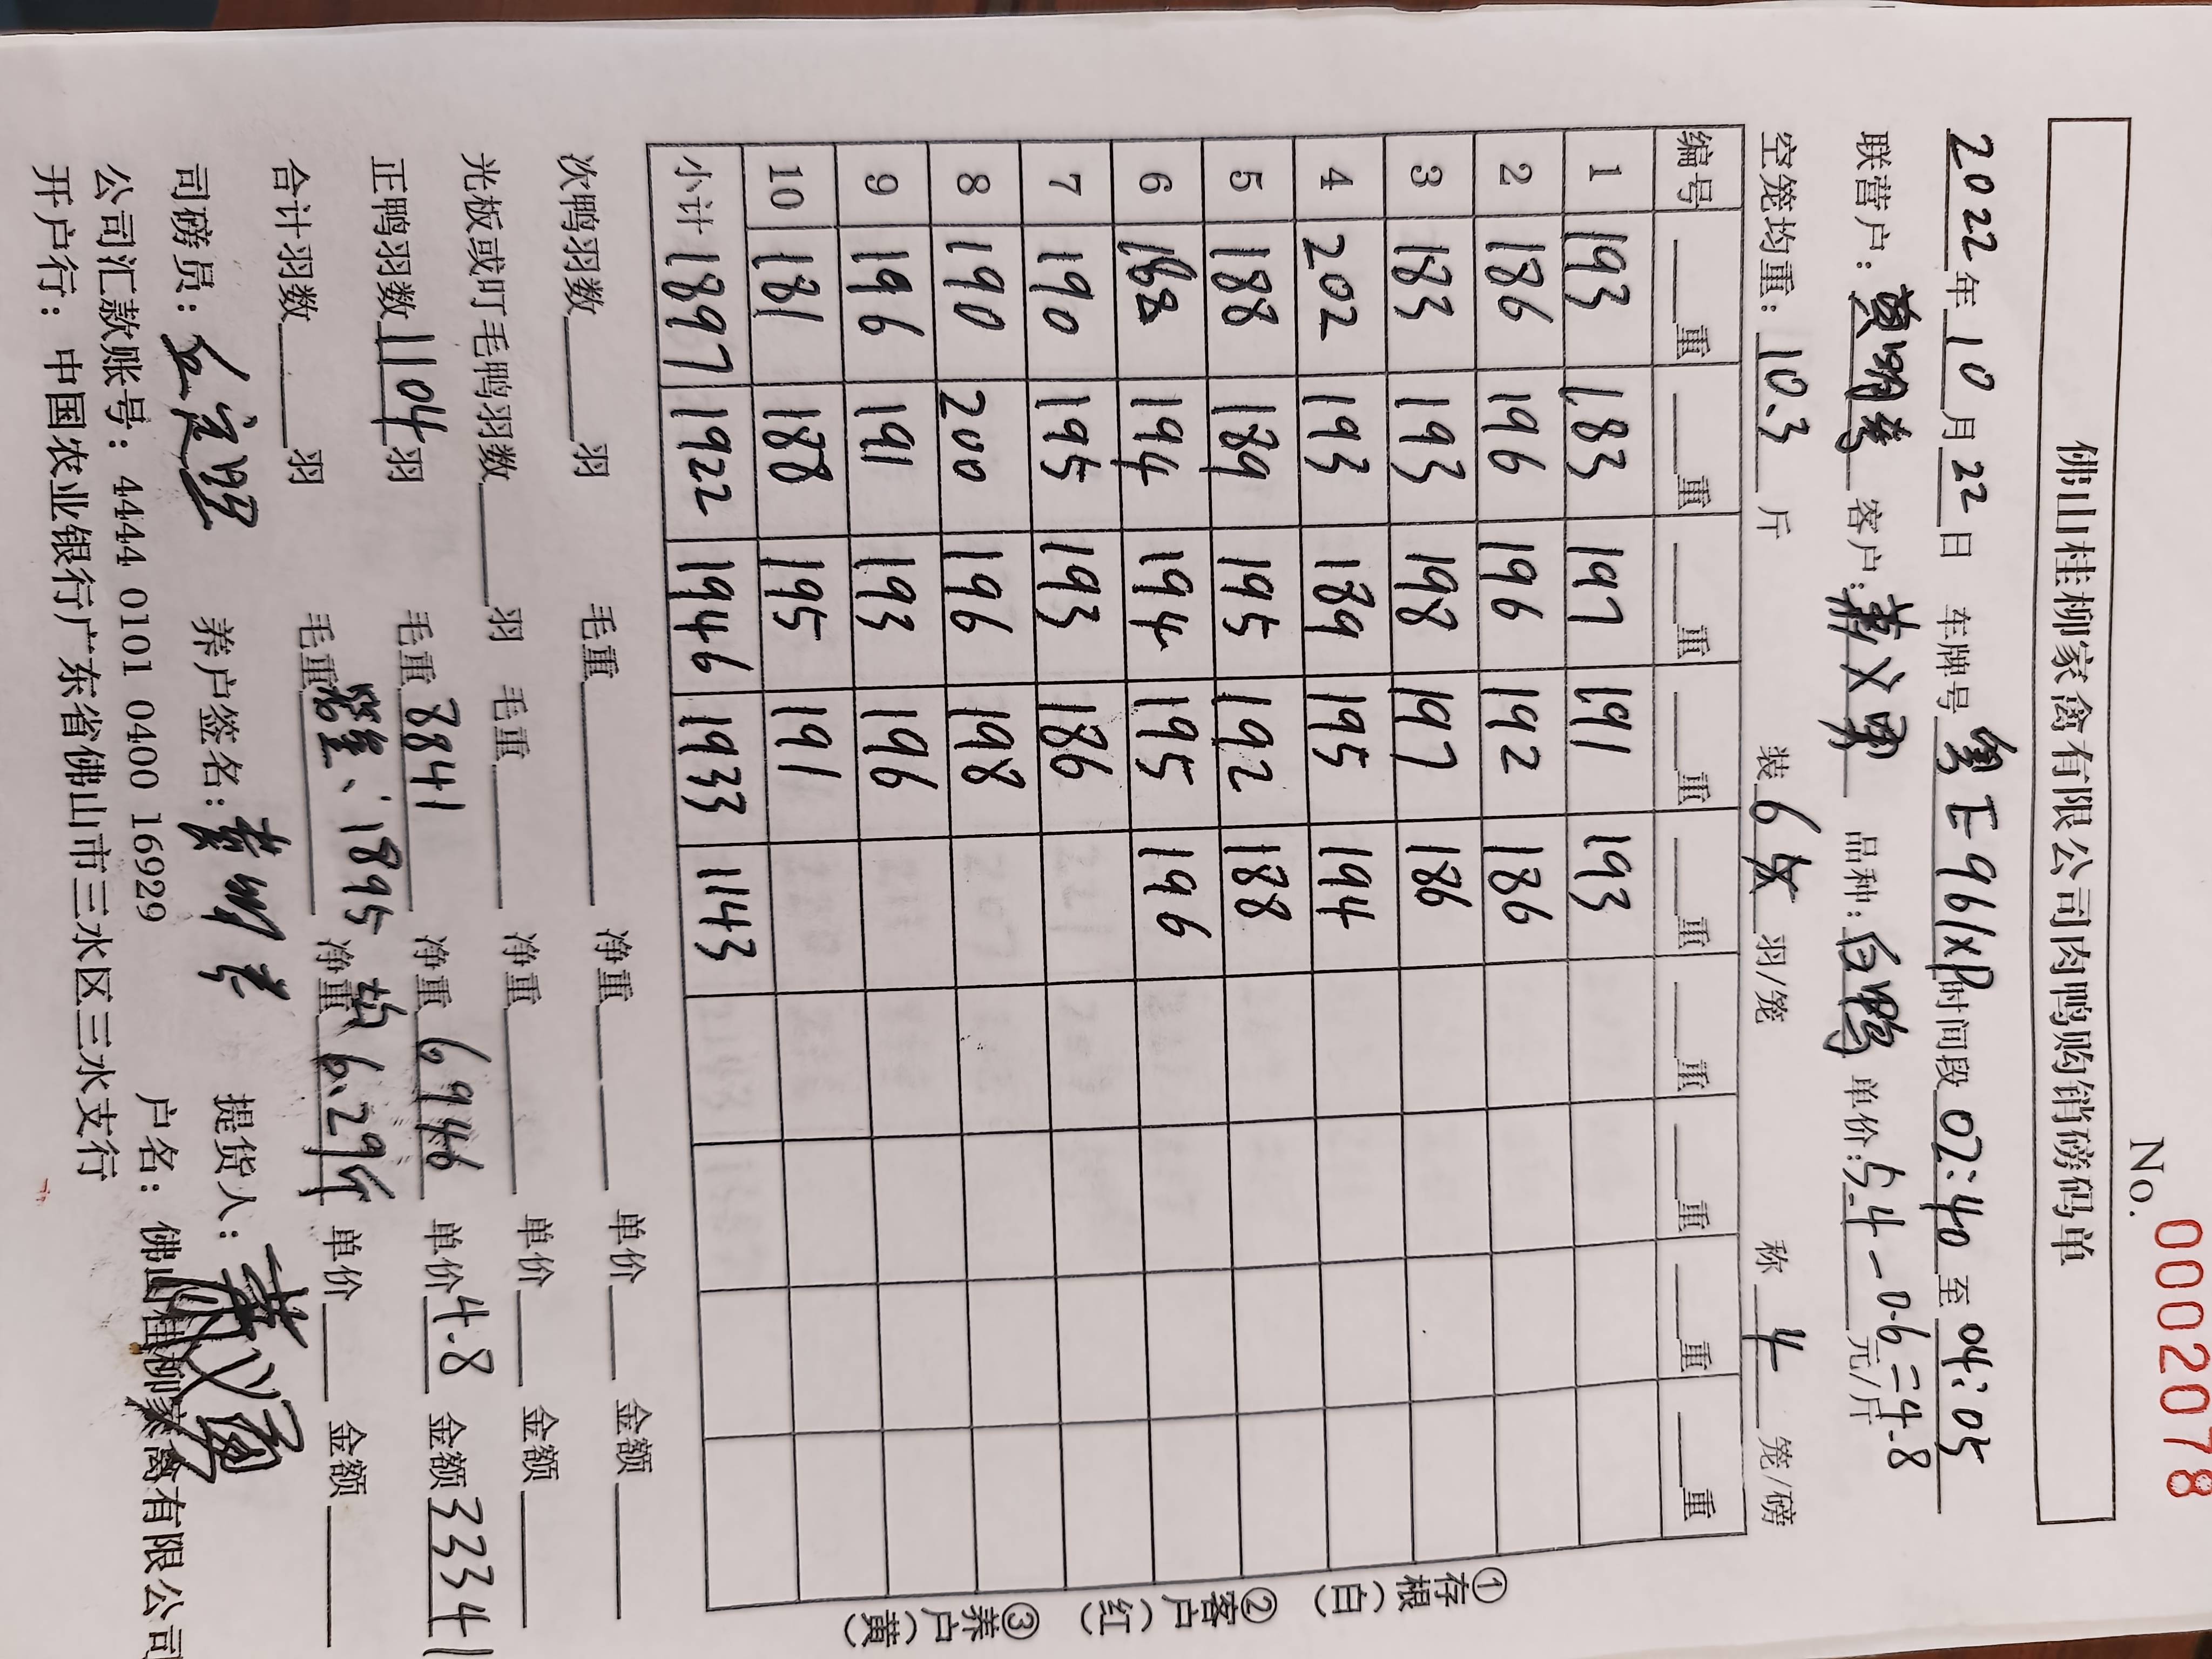 No. 0002078
佛山桂柳家禽有限公司肉鸭购销磅码单
2022年10月22日 车牌号 粤E961XP 时间段 02:40 至 04:05
联营户: 黄明 客户: 萧义勇 品种: 白鸭 单价: 5.4-0.6=4.8 元/斤
空笼均重: 10.3 斤 装 6 羽/笼 称 4 笼/磅
编号 重 重 重 重 重 重 重 重 重
1 193 183 197 191 193
2 186 196 196 192 186
3 183 193 198 197 186
4 202 193 189 195 194
5 188 189 195 192 188
6 188 194 194 195 196
7 190 195 193 186
8 190 200 196 198
9 196 191 193 196
10 181 188 195 191
小计 1897 1922 1946 1933 1143
①存根(白) ②客户(红) ③养户(黄)
次鸭羽数 羽 毛重 净重 单价 金额
光板或叮毛鸭羽数 羽 毛重 净重 单价 金额
正鸭羽数 1104 羽 毛重 8841 净重 6946 单价 4.8 金额 33341
合计羽数 羽 毛重 笼重、1895 净重 均 6.29斤 单价 金额
司磅员: 养户签名: 黄明 提货人: 萧义勇
公司汇款账号: 4444 0101 0400 16929 户名: 佛山桂柳家禽有限公司
开户行: 中国农业银行广东省佛山市三水区三水支行